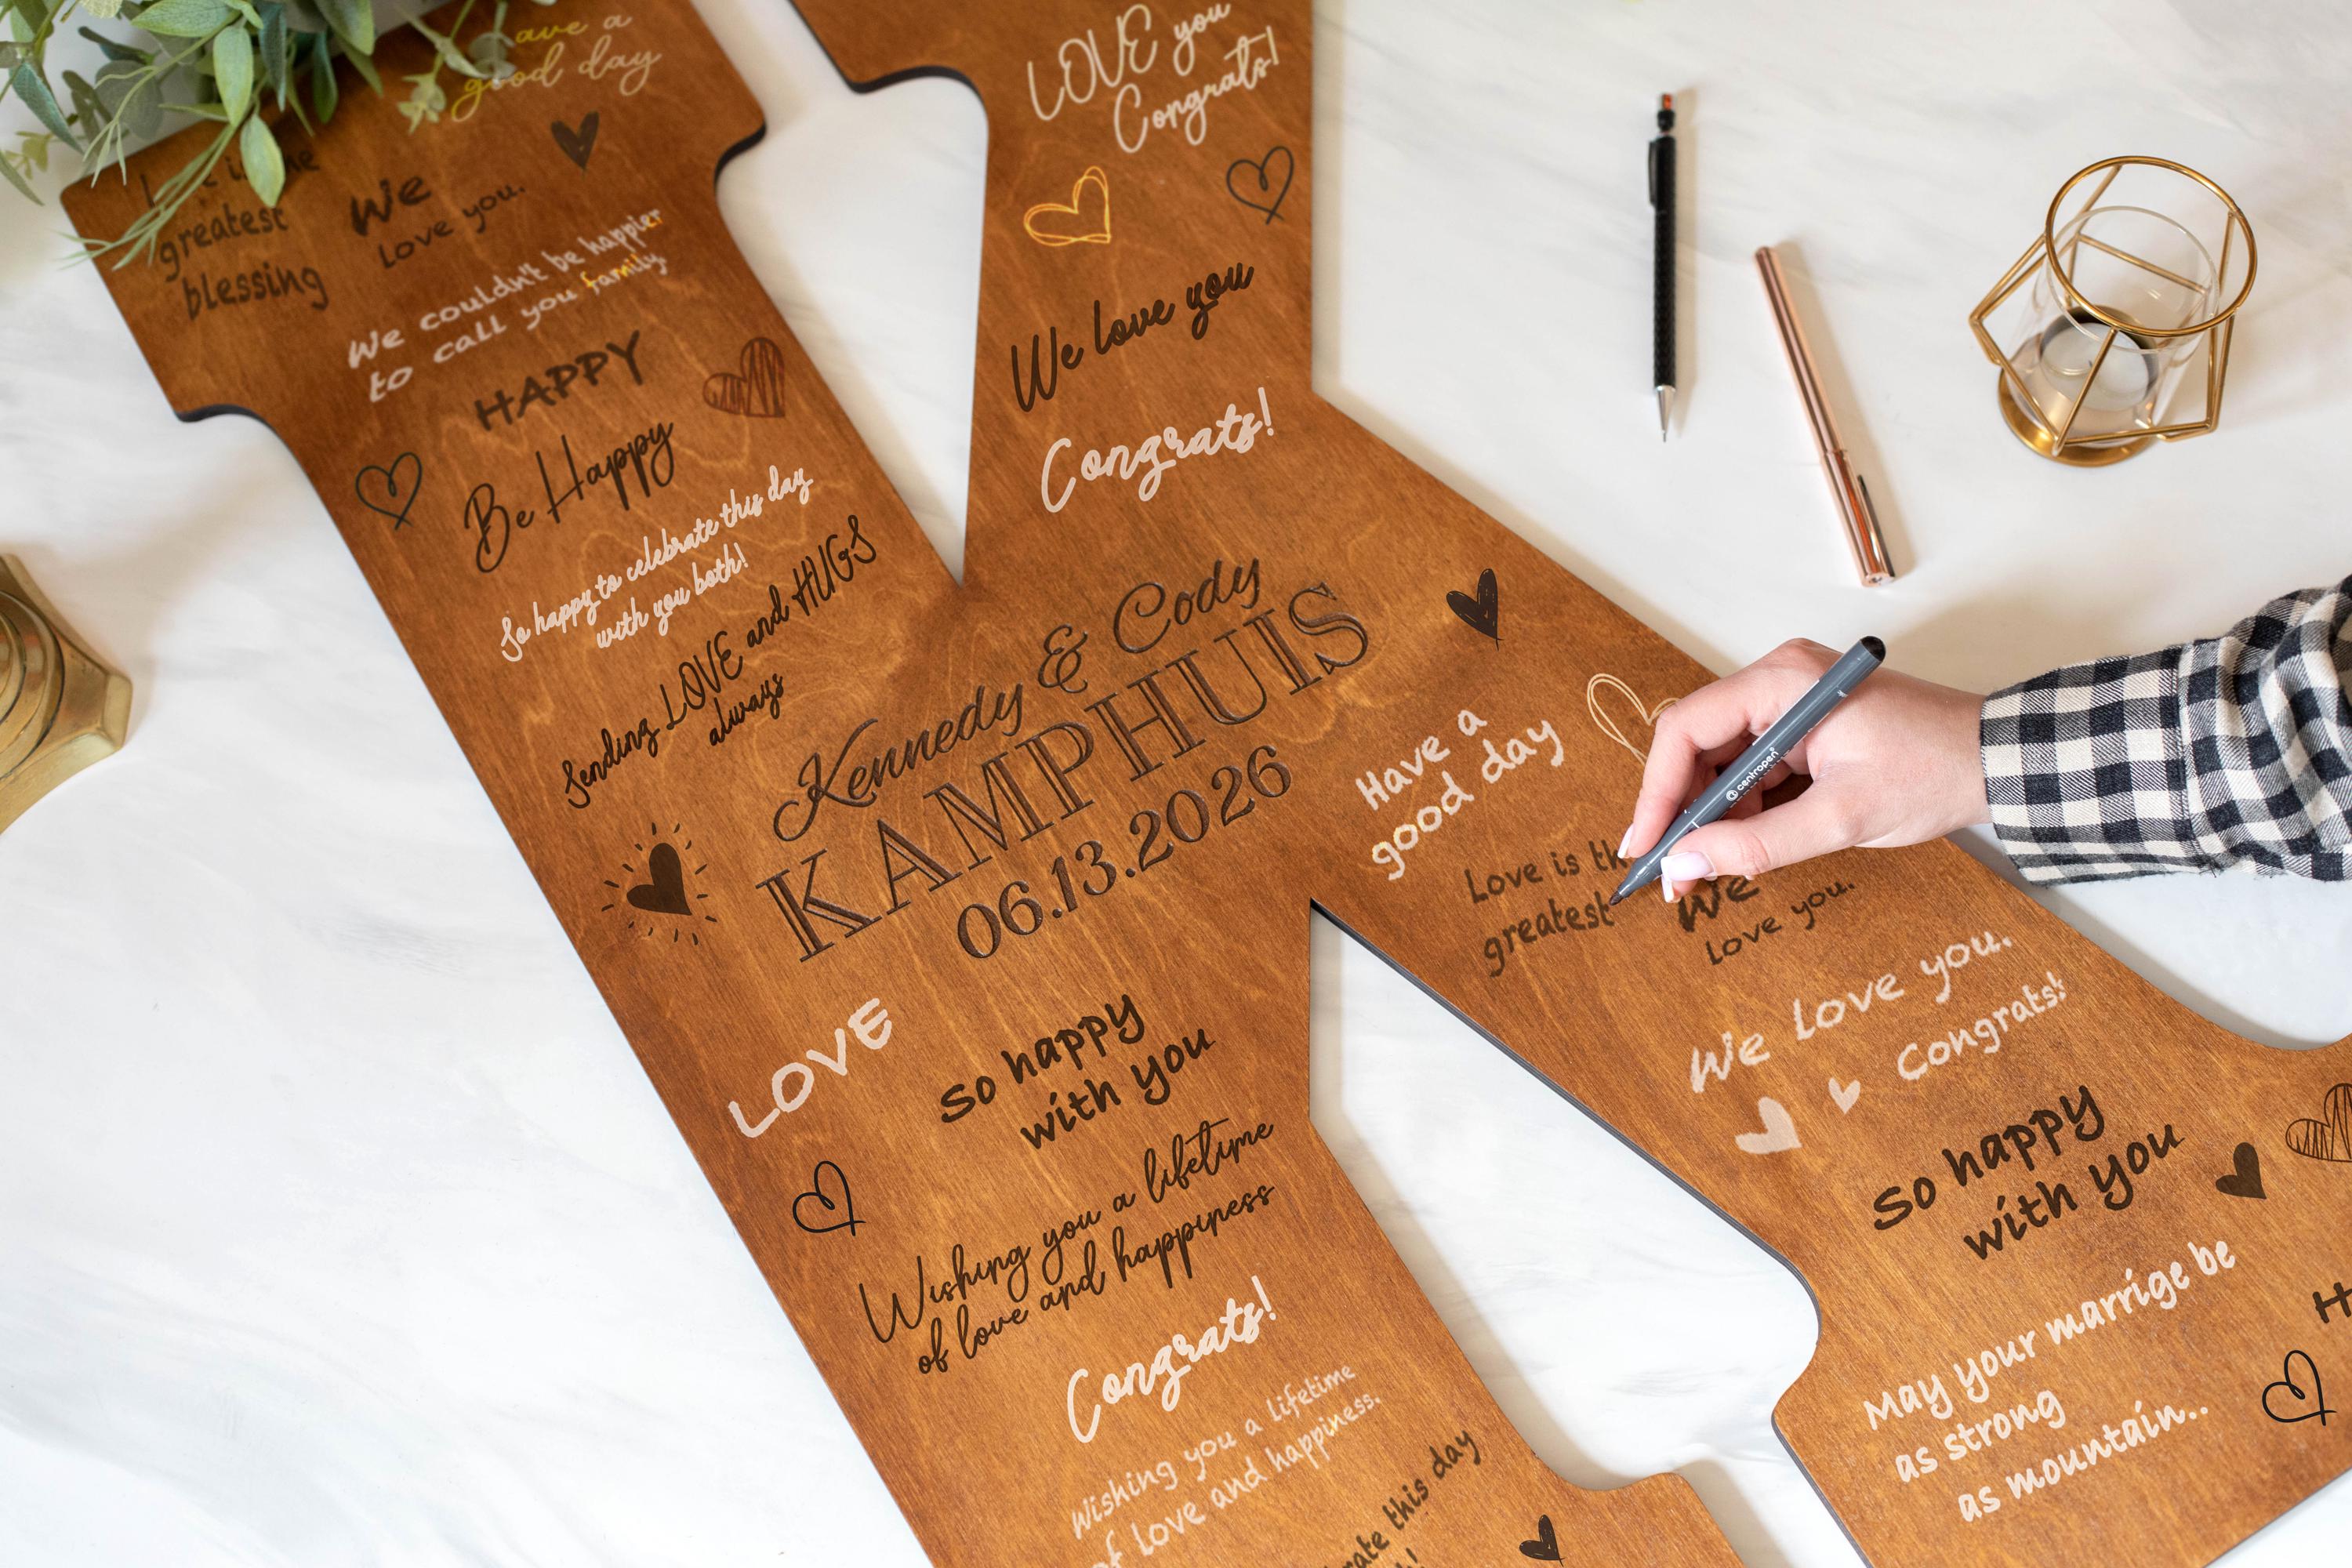 ave a
good day
greatest
blessing
We
Love you.
We couldn't be happier
to call you family.
HAPPY
Be Happy
So happy to celebrate this day
with you both!
Sending LOVE and HUGS
always
LOVE you
Congrats!
We love you
Congrats!
Kennedy & Cody
KAMPHUIS
06.13.2026
LOVE
So happy
with you
Wishing you a lifetime
of love and happiness
Congrats!
Wishing you a lifetime
of love and happiness.
this day
Have a
good day
Love is th
greatest
We
Love you.
centropen
We Love you.
Congrats!
So happy
with you
May your marrige be
as strong
as mountain..
H